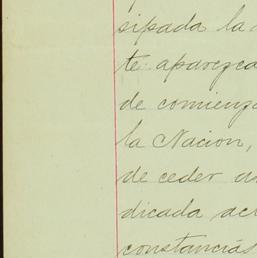 sipada la
te aparezca
de comienzo
la Nacion,
de ceder
dicada
constancias